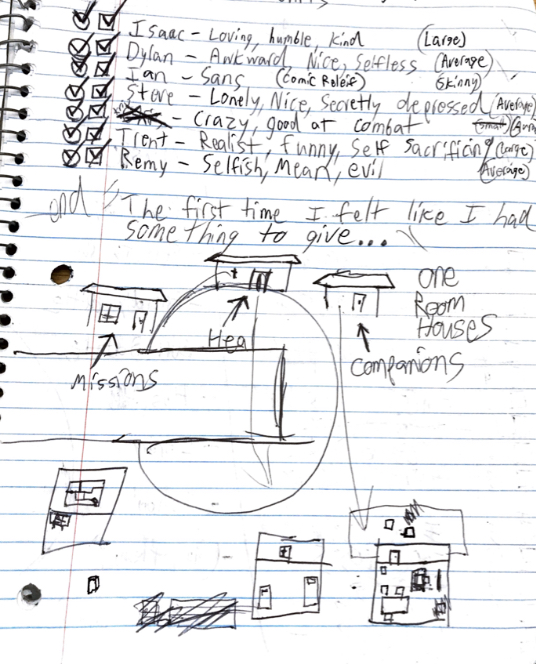 Isaac - Loving, humble, kind (Large)
Dylan - Awkward, Nice, Selfless (Average)
Ian - Sans (Comic Releif) (Skinny)
Steve - Lonely, Nice, Secretly depressed (Average)
- Crazy, good at combat
Trent - Realist, funny, Self Sacrificing (Large)
Remy - Selfish, Mean, evil (Average)
end "The first time I felt like I had
something to give..."
one
Room
Houses
Hea
Missions
Companions